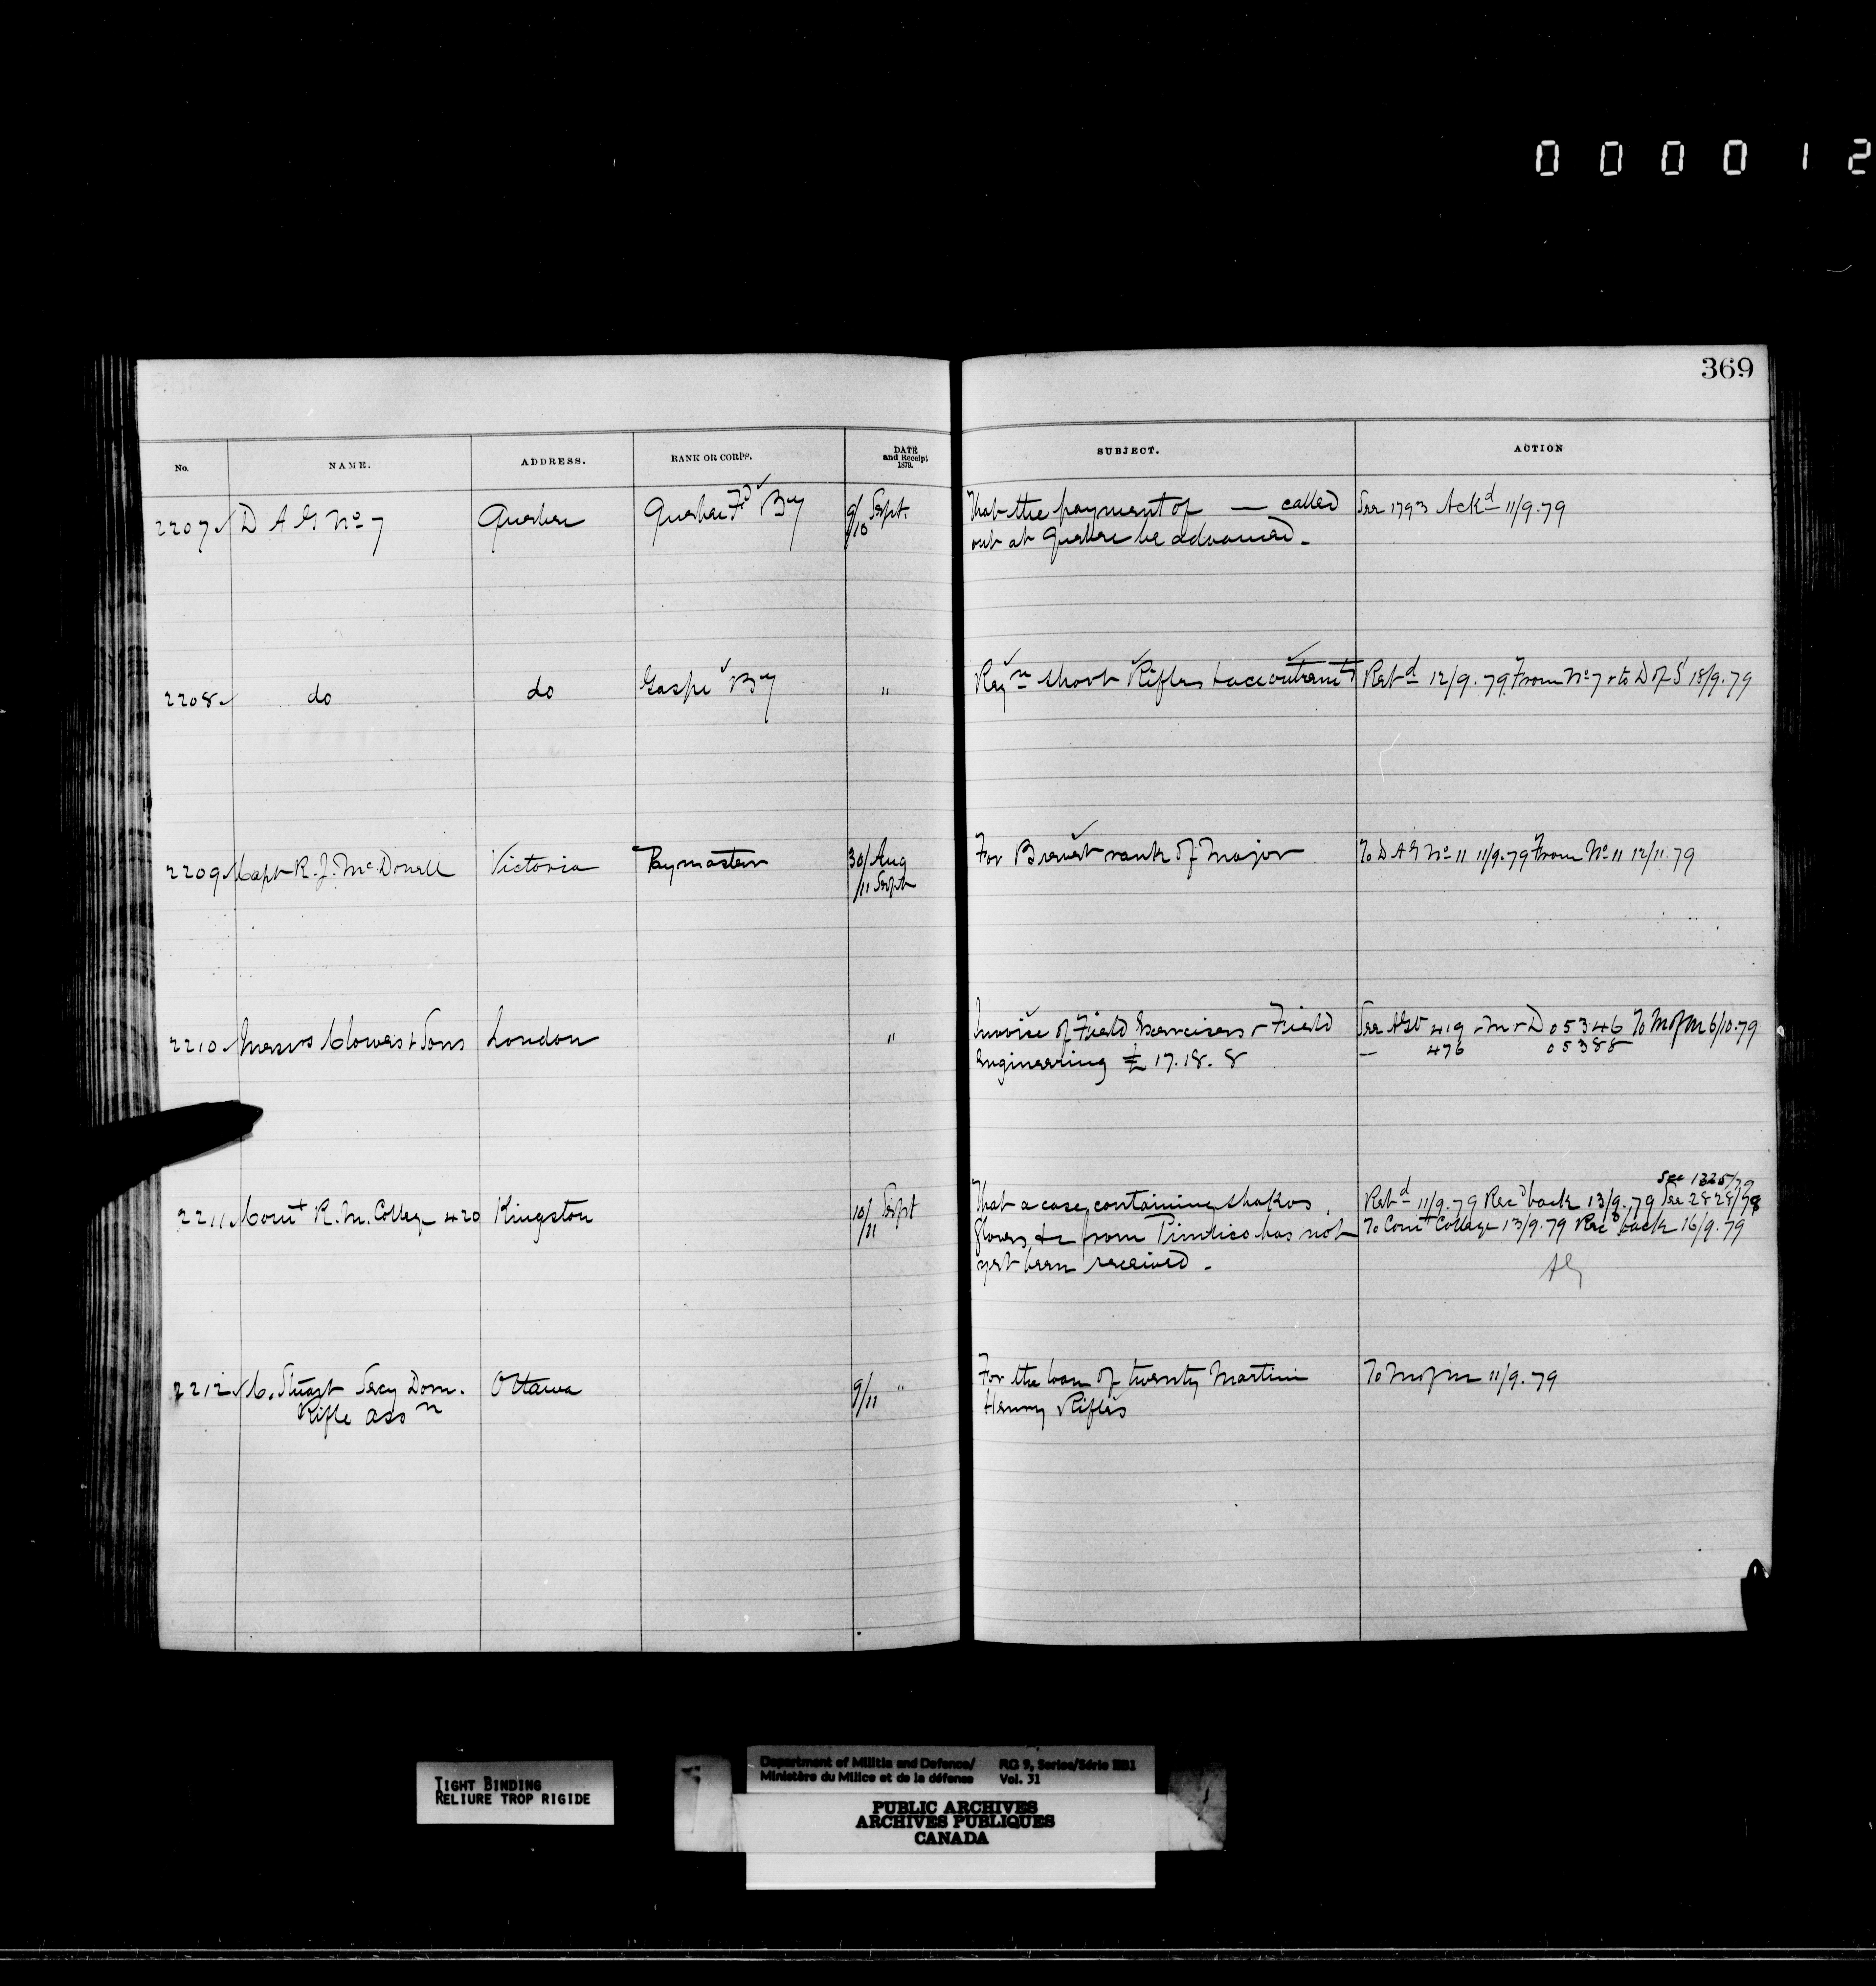 0 0 0 0 1 2
369
No. NAME. ADDRESS. RANK OR CORPS. DATE and Receipt 1879. SUBJECT. ACTION
2207 D A G No 7 Quebec Quebec Fd By 9/10 Sept. That the payment of — called See 1793 Ackd 11/9.79
out at Quebec be advanced.
2208 do do Gaspe By " Reqn short Rifles & accoutremts Retd 12/9.79 From No 7 & to D of S 18/9.79
2209 Capt R. J. McDonell Victoria Paymaster 30/ Aug For Brevet rank of Major To D A G No 11 11/9.79 From No 11 12/11.79
/11 Sept
2210 Messrs Clowes & Sons London " Invoice of Field Exercises & Field See 419 M & D 05346 To M of M 6/10.79
Engineering £ 17.18.8 — 476 05388
See 1325/79
2211 Comt R. M. College 420 Kingston 10/11 Sept That a case containing shakos, Retd 11/9.79 Recd back 13/9.79 See 2828/78
Gloves, &c from Pimlico has not To Comt College 13/9.79 Recd back 16/9.79
yet been received.
2212 C. Stuart Secy Dom. Ottawa 9/11 " For the loan of twenty Martini To M of M 11/9.79
Rifle Asson Henry Rifles
TIGHT BINDING
RELIURE TROP RIGIDE
Department of Militia and Defence/ RG 9, Series/Série IIB1
Ministère du Milice et de la défense Vol. 31
PUBLIC ARCHIVES
ARCHIVES PUBLIQUES
CANADA